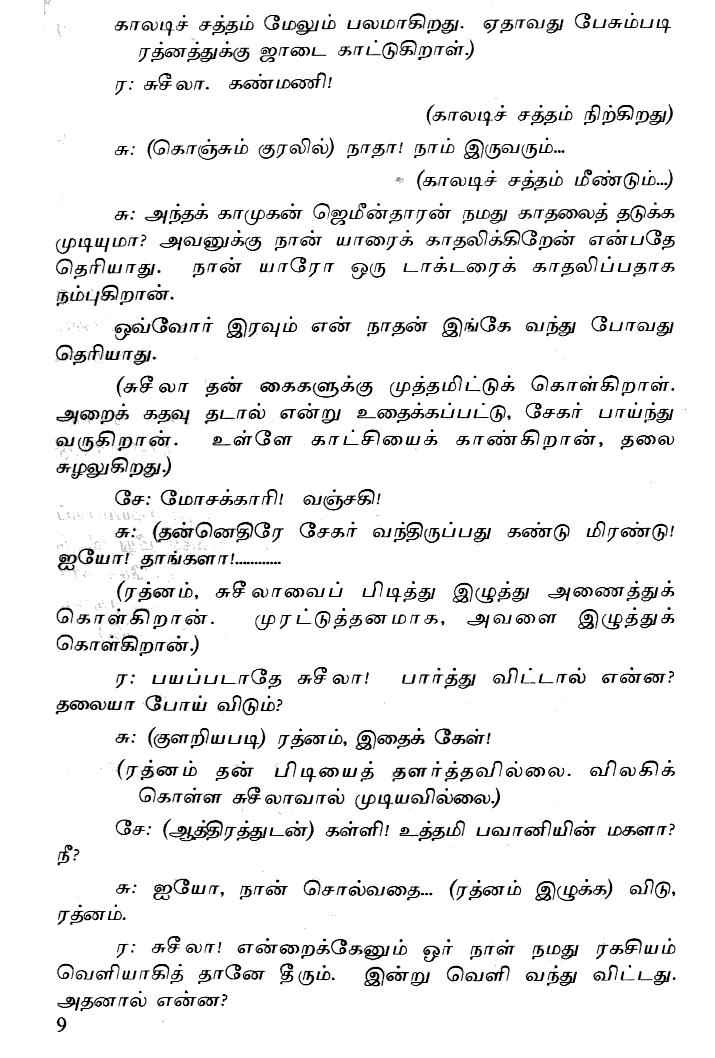 காலடிச் சத்தம் மேலும் பலமாகிறது. ஏதாவது பேசும்படி
ரத்னத்துக்கு ஜாடை காட்டுகிறாள்.)
ர: சுசீலா. கண்மணி!
(காலடிச் சத்தம் நிற்கிறது)
சு: (கொஞ்சும் குரலில்) நாதா! நாம் இருவரும்...
(காலடிச் சத்தம் மீண்டும்...)
சு: அந்தக் காமுகன் ஜெமீன்தாரன் நமது காதலைத் தடுக்க
முடியுமா? அவனுக்கு நான் யாரைக் காதலிக்கிறேன் என்பதே
தெரியாது. நான் யாரோ ஒரு டாக்டரைக் காதலிப்பதாக
நம்புகிறான்.
ஒவ்வோர் இரவும் என் நாதன் இங்கே வந்து போவது
தெரியாது.
(சுசீலா தன் கைகளுக்கு முத்தமிட்டுக் கொள்கிறாள்.
அறைக் கதவு தடால் என்று உதைக்கப்பட்டு, சேகர் பாய்ந்து
வருகிறான். உள்ளே காட்சியைக் காண்கிறான், தலை
சுழலுகிறது.)
சே: மோசக்காரி! வஞ்சகி!
சு: (தன்னெதிரே சேகர் வந்திருப்பது கண்டு மிரண்டு!
ஐயோ! தாங்களா!............
(ரத்னம், சுசீலாவைப் பிடித்து இழுத்து அணைத்துக்
கொள்கிறான். முரட்டுத்தனமாக, அவளை இழுத்துக்
கொள்கிறான்.)
ர: பயப்படாதே சுசீலா! பார்த்து விட்டால் என்ன?
தலையா போய் விடும்?
சு: (குளறியபடி) ரத்னம், இதைக் கேள்!
(ரத்னம் தன் பிடியைத் தளர்த்தவில்லை. விலகிக்
கொள்ள சுசீலாவால் முடியவில்லை.)
சே: (ஆத்திரத்துடன்) கள்ளி! உத்தமி பவானியின் மகளா?
நீ?
சு: ஐயோ, நான் சொல்வதை... (ரத்னம் இழுக்க) விடு,
ரத்னம்.
ர: சுசீலா! என்றைக்கேனும் ஓர் நாள் நமது ரகசியம்
வெளியாகித் தானே தீரும். இன்று வெளி வந்து விட்டது.
அதனால் என்ன?
9